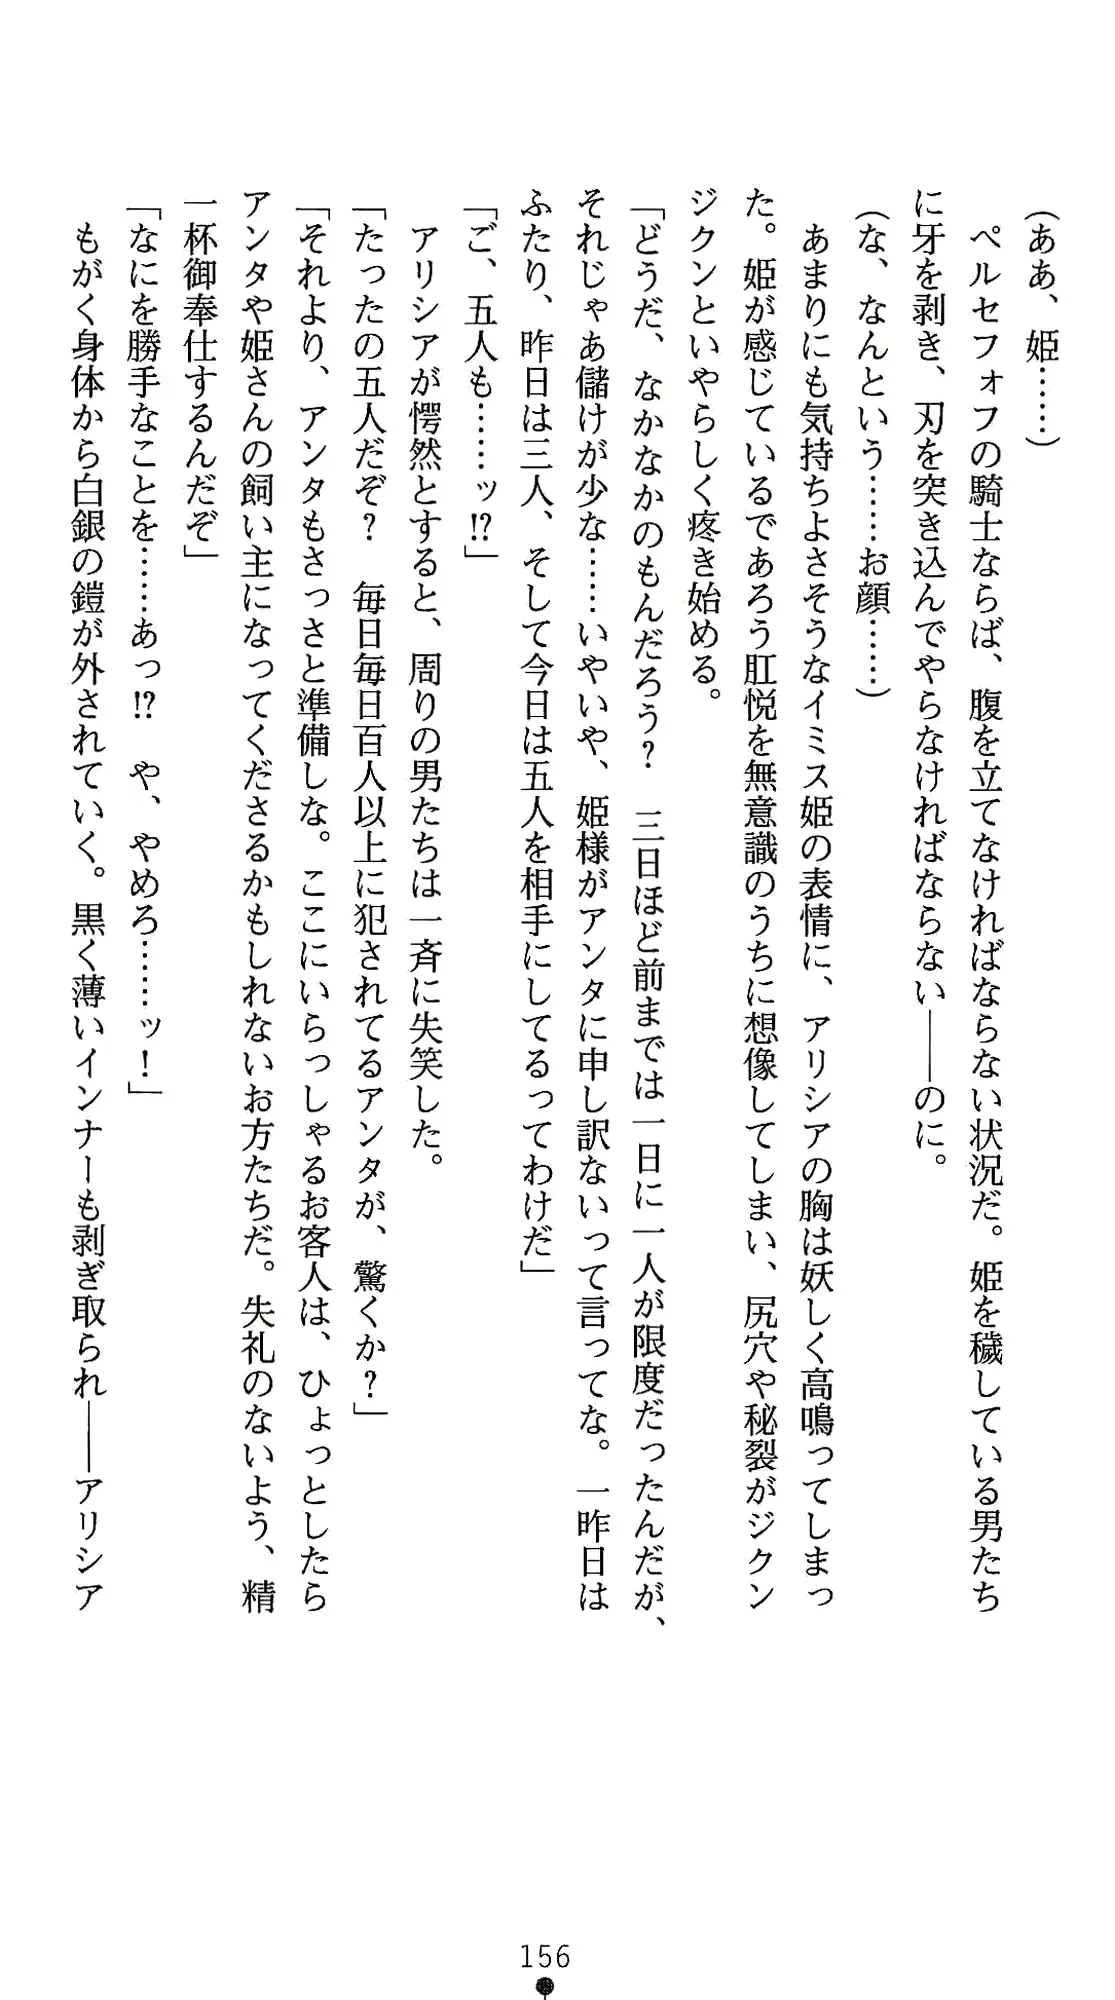 (ああ、姫……)
ペルセフォフの騎士ならば、腹を立てなければならない状況だ。姫を穢している男たち
に牙を剥き、刃を突き込んでやらなければならない――のに。
(な、なんという……お顔……)
あまりにも気持ちよさそうなイミス姫の表情に、アリシアの胸は妖しく高鳴ってしまっ
た。姫が感じているであろう肛悦を無意識のうちに想像してしまい、尻穴や秘裂がジクン
ジクンといやらしく疼き始める。
「どうだ、なかなかのもんだろう？　三日ほど前までは一日に一人が限度だったんだが、
それじゃぁ儲けが少な……いやいや、姫様がアンタに申し訳ないって言ってな。一昨日は
ふたり、昨日は三人、そして今日は五人を相手にしてるってわけだ」
「ご、五人も……ッ!?」
アリシアが愕然とすると、周りの男たちは一斉に失笑した。
「たったの五人だぞ？　毎日毎日百人以上に犯されてるアンタが、驚くか？」
「それより、アンタもさっさと準備しな。ここにいらっしゃるお客人は、ひょっとしたら
アンタや姫さんの飼い主になってくださるかもしれないお方たちだ。失礼のないよう、精
一杯御奉仕するんだぞ」
「なにを勝手なことを……あっ!?　や、やめろ……ッ！」
もがく身体から白銀の鎧が外されていく。黒く薄いインナーも剥ぎ取られ――アリシア
156